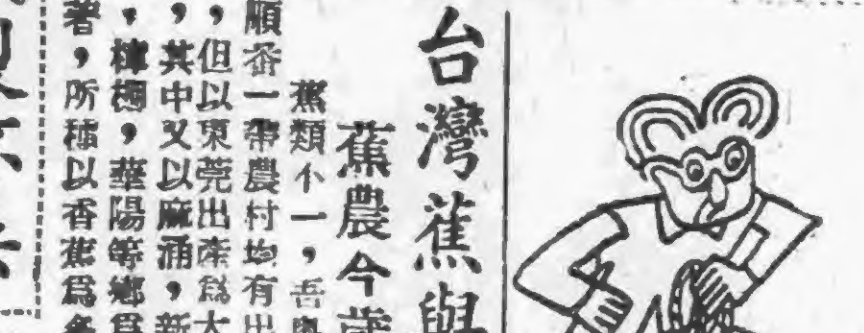 台灣蕉與
蕉農今歲
蕉類不一，吾粵
順番一帶農村均有出
，但以東莞出產爲大
，其中又以麻涌，新
，樟棚，華陽等鄉爲
著，所種以香蕉爲多